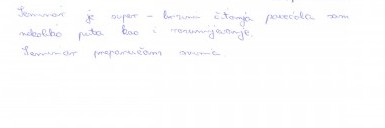 Seminar je super - brzinu čitanja povećala sam
nekoliko puta kao i razumijevanje.
Seminar preporučam svima